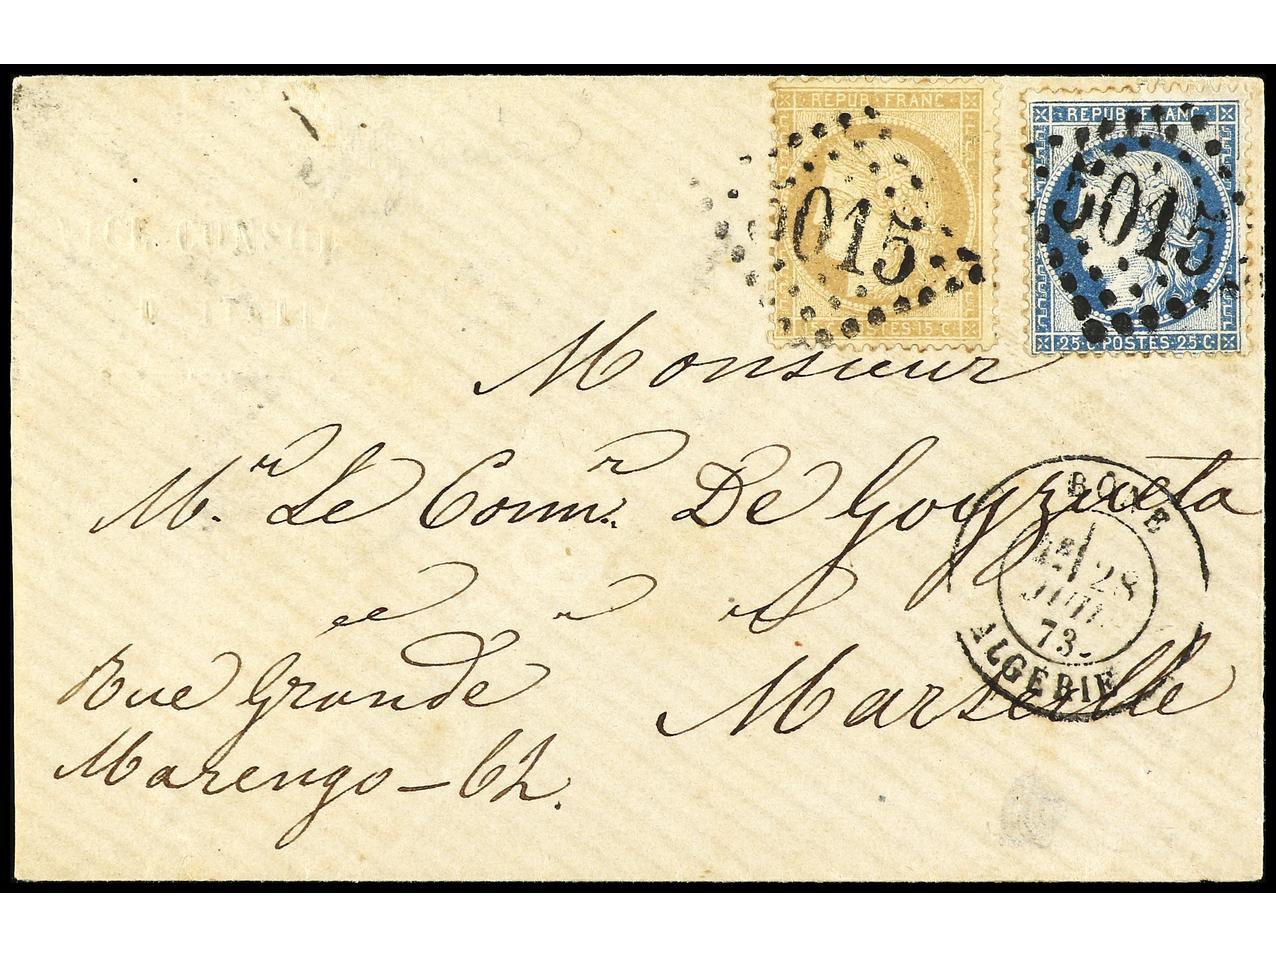 REPUB. FRANC.
15·C·POSTES·15·C
REPUB. FRANC.
25·C·POSTES·25·C
5015
5015
Monsieur
Mr. Le Comr. De Goyzueta
Rue Grande
Marengo - 62.
Marseille
BONE
1E/ 28
JUIL.
73
ALGÉRIE